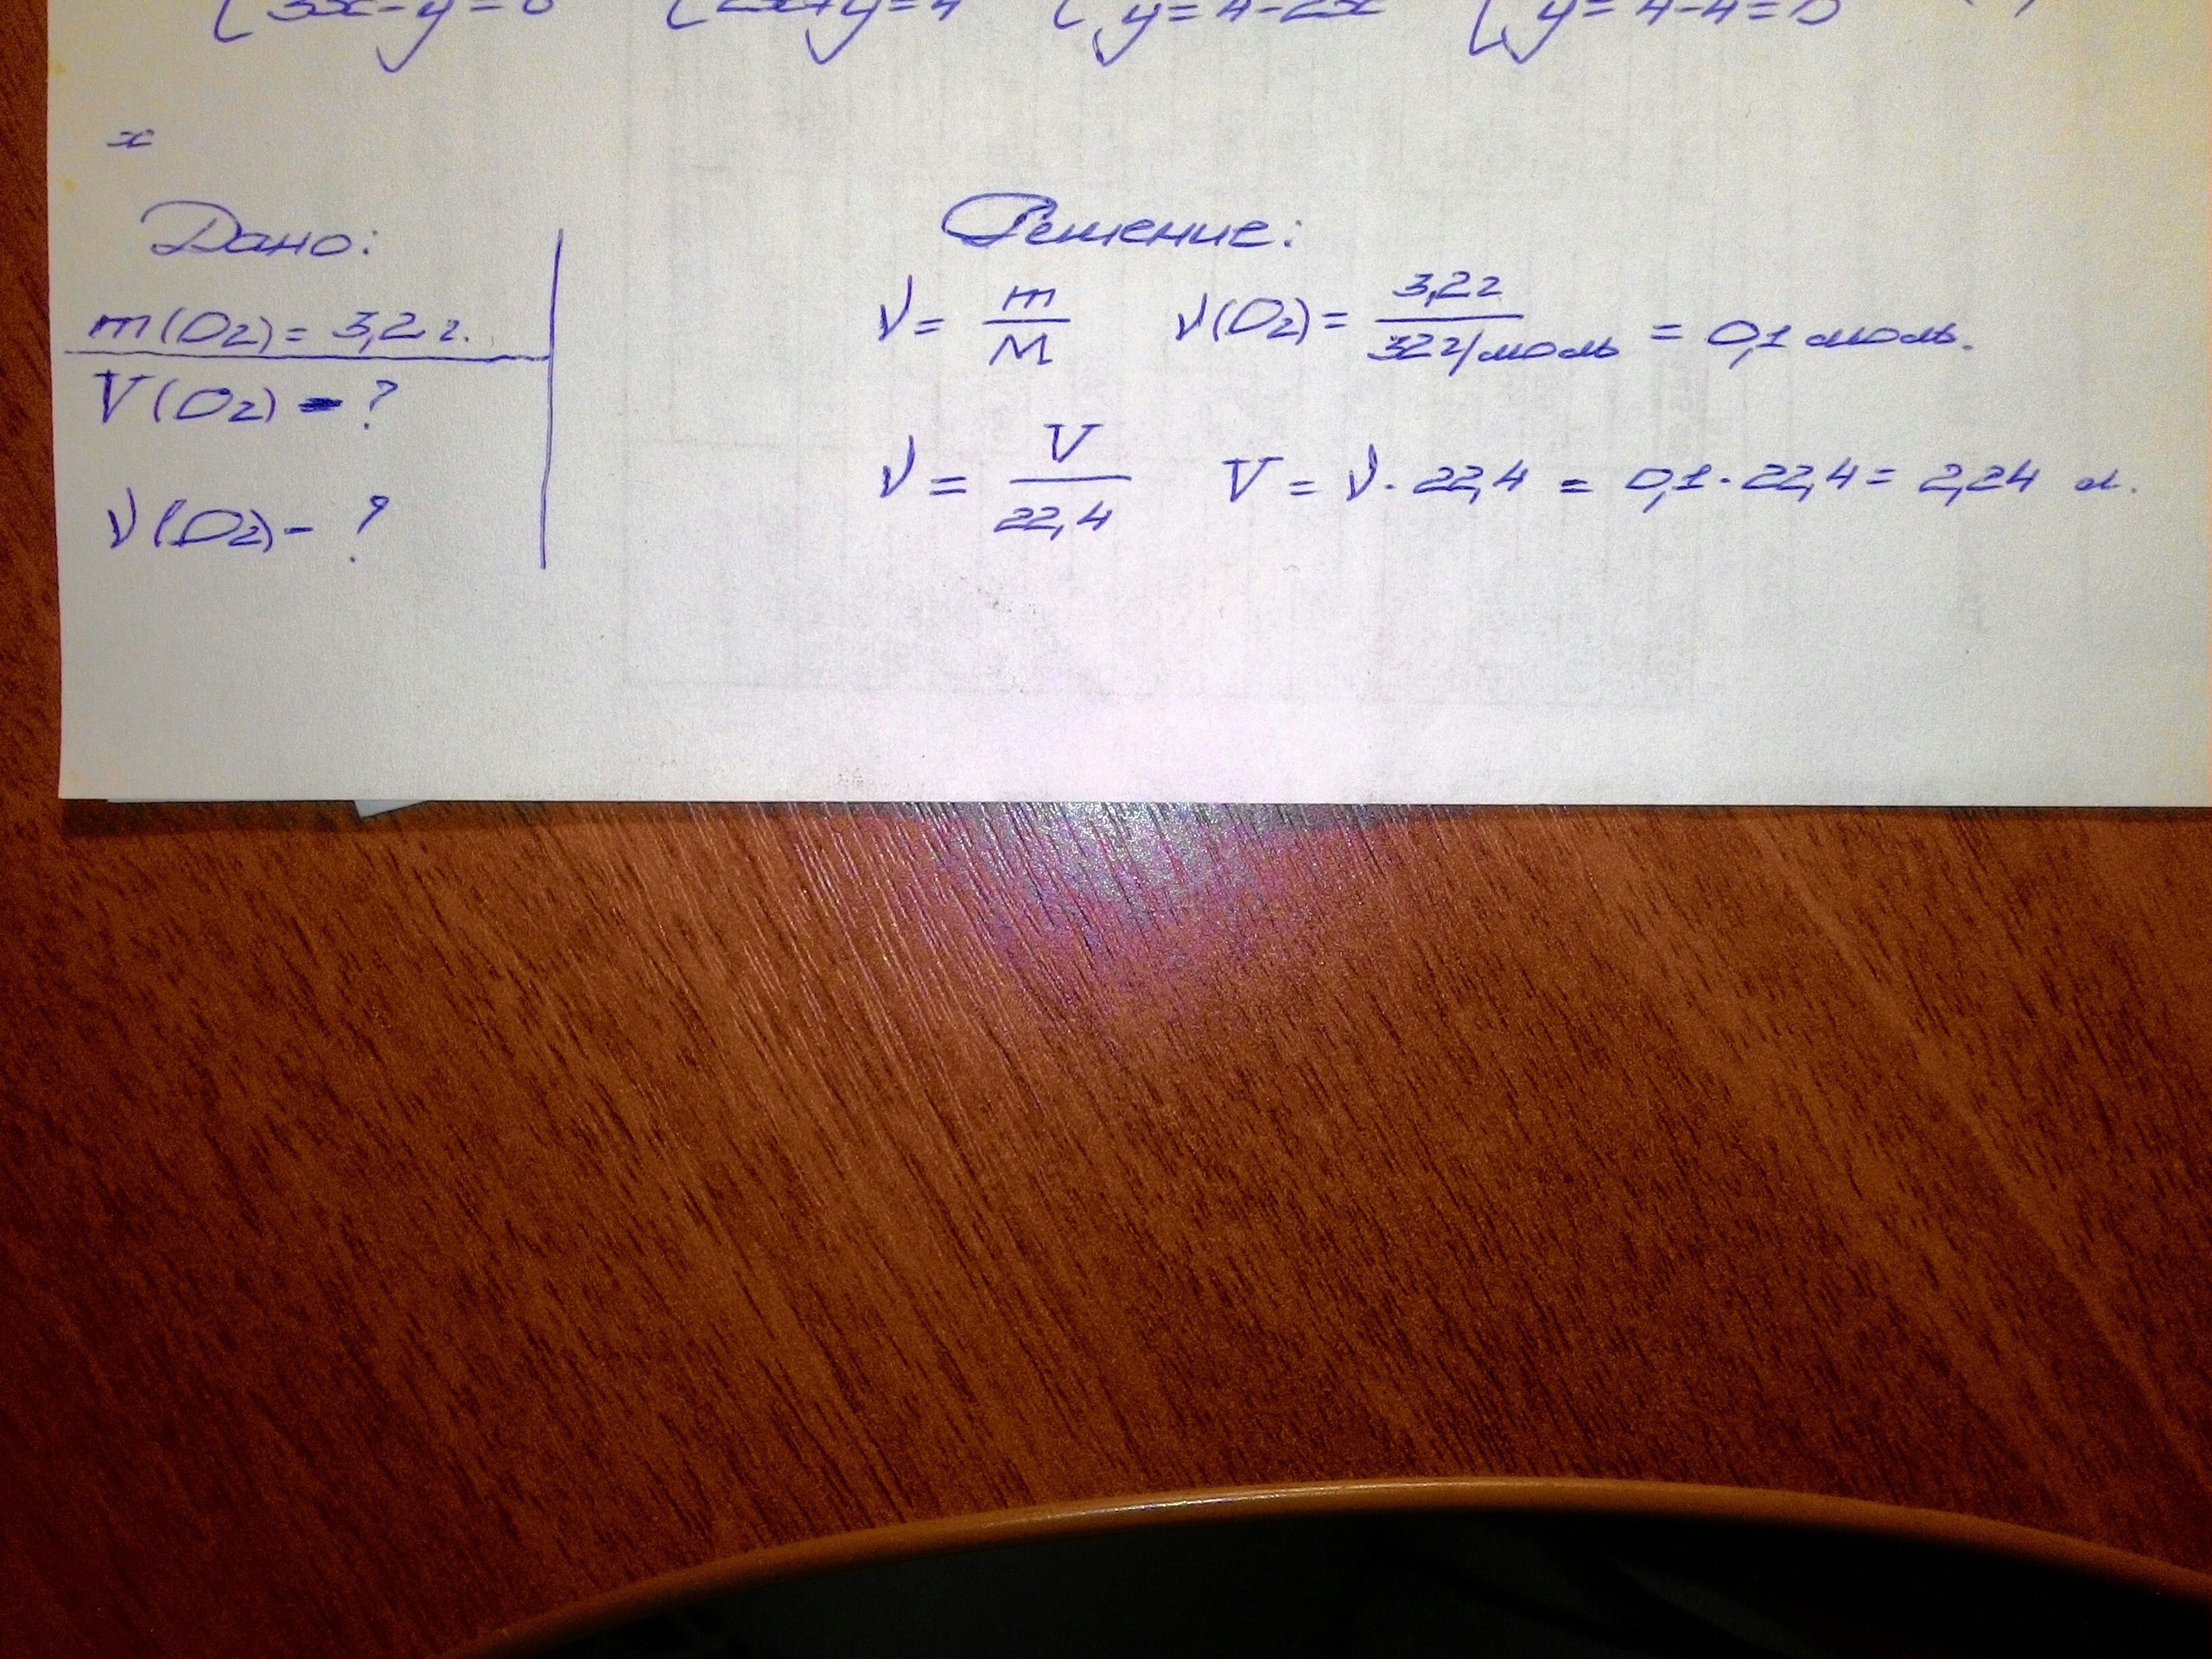 3x-y=6 2x+y=4 y=4-2x y=4-4=0
x
Дано:
m(O₂)= 3,2 г.
V(O₂) - ?
ν(O₂)- ?
Решение:
ν= m/M ν(O₂)= 3,2г/32г/моль = 0,1 моль.
ν = V/22,4 V = ν · 22,4 = 0,1 · 22,4 = 2,24 л.